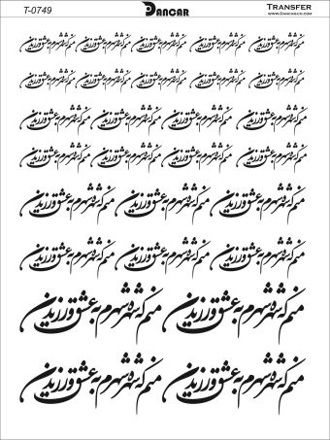 T-0749 DANCAR TRANSFER
www.Dancarcm.com
منم که شهره شهرم به عشق ورزیدن منم که شهره شهرم به عشق ورزیدن منم که شهره شهرم به عشق ورزیدن منم که شهره شهرم به عشق ورزیدن منم که شهره شهرم به عشق ورزیدن
منم که شهره شهرم به عشق ورزیدن منم که شهره شهرم به عشق ورزیدن منم که شهره شهرم به عشق ورزیدن منم که شهره شهرم به عشق ورزیدن منم که شهره شهرم به عشق ورزیدن
منم که شهره شهرم به عشق ورزیدن منم که شهره شهرم به عشق ورزیدن منم که شهره شهرم به عشق ورزیدن منم که شهره شهرم به عشق ورزیدن
منم که شهره شهرم به عشق ورزیدن منم که شهره شهرم به عشق ورزیدن منم که شهره شهرم به عشق ورزیدن منم که شهره شهرم به عشق ورزیدن
منم که شهره شهرم به عشق ورزیدن منم که شهره شهرم به عشق ورزیدن منم که شهره شهرم به عشق ورزیدن
منم که شهره شهرم به عشق ورزیدن منم که شهره شهرم به عشق ورزیدن منم که شهره شهرم به عشق ورزیدن
منم که شهره شهرم به عشق ورزیدن منم که شهره شهرم به عشق ورزیدن
منم که شهره شهرم به عشق ورزیدن منم که شهره شهرم به عشق ورزیدن